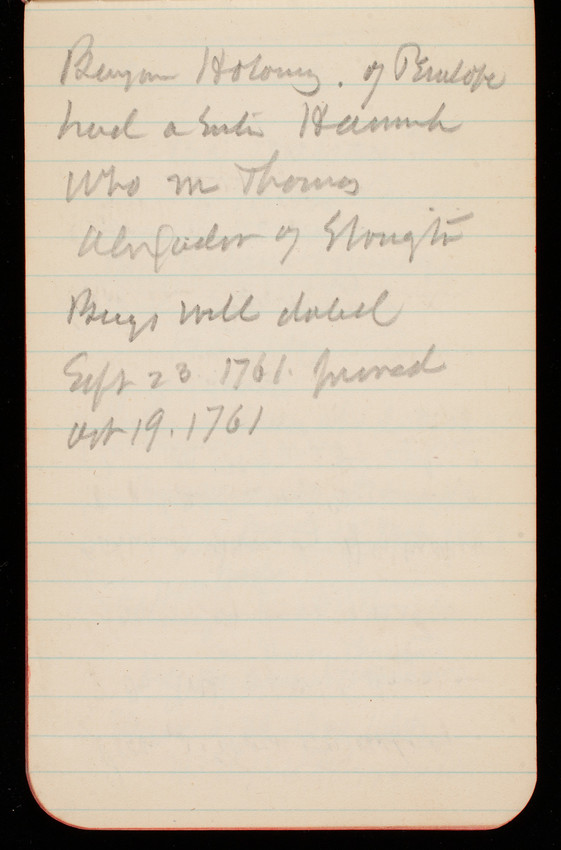 Benjam Holowy. of Penelope
had a sister Hannah
Who m Thomas
of Stoughton
Benjs will dated
Sept 23 1761. proved
Oct 19. 1761